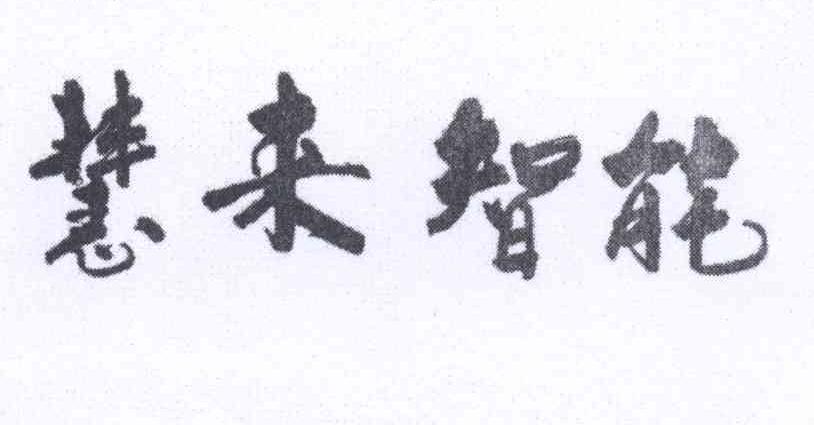 慧来智能